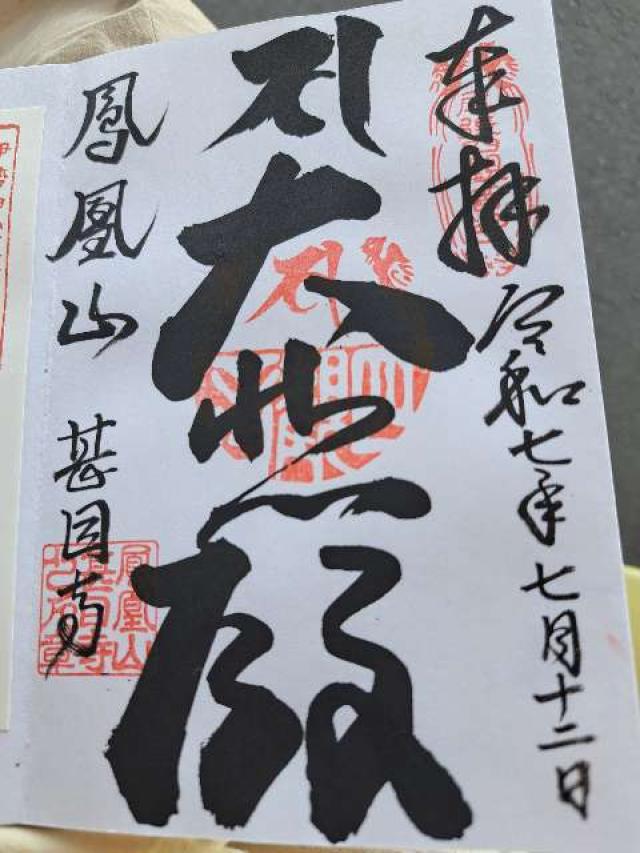 奉拝
令和七年七月十二日
大悲殿
鳳凰山 甚目寺
鳳凰山
甚目寺